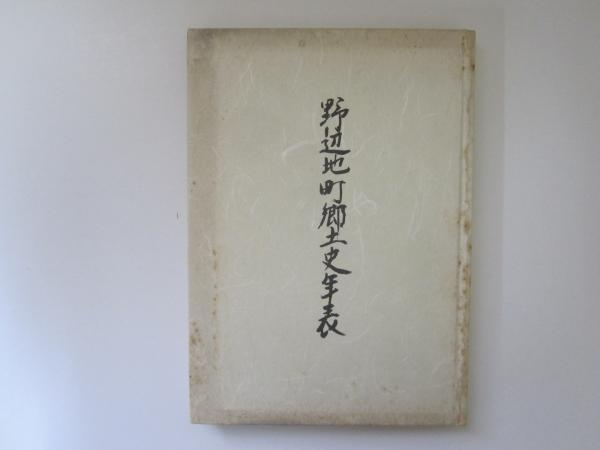 野辺地町郷土史年表